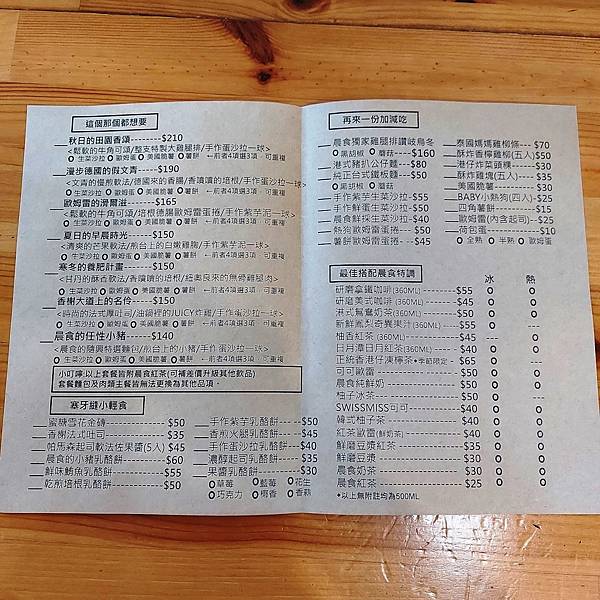 這個那個都想要
秋日的田園香頌--------$210
<鬆軟的牛角可頌/整支特製大雞腿排/手作蛋沙拉一球>
生菜沙拉 歐姆蛋 美國脆薯 薯餅 ←前者4項選3項 可重複
漫步德國的假文青-----$190
<文青的慢煎軟法/德國來的香腸/香噴噴的培根/手作蛋沙拉一球>
生菜沙拉 歐姆蛋 美國脆薯 薯餅 ←前者4項選3項 可重複
歐姆雷的滑爾滋------$165
<鬆軟的牛角可頌/培根德腸歐姆雷蛋捲/手作紫芋泥一球>
生菜沙拉 歐姆蛋 美國脆薯 薯餅 ←前者4項選3項 可重複
夏日的早晨時光------$150
<清爽的芒果軟法/煎台上的白嫩雞胸/手作紫芋泥一球>
生菜沙拉 歐姆蛋 美國脆薯 薯餅 ←前者4項選3項 可重複
寒冬的養肥計畫------$150
<甘丹的酥香軟法/香噴噴的培根/紐奧良來的無骨雞腿肉>
生菜沙拉 歐姆蛋 美國脆薯 薯餅 ←前者4項選3項 可重複
香榭大道上的名伶-----$150
<時尚的法式厚吐司/油鍋裡的JUICY炸雞/手作蛋沙拉一球>
生菜沙拉 歐姆蛋 美國脆薯 薯餅 ←前者4項選3項 可重複
晨食的任性小豬------$140
<晨食的隨興特選麵包/煎台上的小豬/手作蛋沙拉一球>
生菜沙拉 歐姆蛋 美國脆薯 薯餅 ←前者4項選3項 可重複
小叮嚀:以上套餐皆附晨食紅茶(可補差價升級其他飲品)
套餐麵包及肉類主餐皆無法更換為其他品項。
塞牙縫小輕食
蜜糖雪花金磚-----------$50
香榭法式吐司-----------$35
帕馬森起司軟法佐果醬(5入) $45
晨食的小豬乳酪餅--------$60
鮮味鮪魚乳酪餅---------$55
乾煎培根乳酪餅---------$50
手作紫芋乳酪餅--- -$50
香煎火腿乳酪餅----$45
手作蛋沙拉乳酪餅-- -$40
濃醇起司乳酪餅--- -$35
果醬乳酪餅-------$30
草莓 藍莓 花生
巧克力 椰香 香蒜
再來一份加減吃
晨食獨家雞腿排讚岐烏冬
黑胡椒 蘑菇------$160
港式豬扒公仔麵---$80
純正台式鐵板麵---$50
黑胡椒 蘑菇
手作紫芋生菜沙拉-$55
手作鮮蛋生菜沙拉-$55
晨食鮮採生菜沙拉-$40
熱狗歐姆雷蛋捲--$50
薯餅歐姆雷蛋捲--$45
泰國媽媽雞柳條--- $70
酥炸香檸雞柳(五入)$50
港仔炸菜頭粿-----$30
酥炸雞塊(五入)---$35
美國脆薯--------$30
BABY小熱狗(四入)-$25
四角薯餅--------$15
歐姆雷(內含起司)--$25
荷包蛋----------$10
全熟 半熟 歐姆蛋
最佳搭配晨食特調
冰 熱
研磨拿鐵咖啡(360ML)-------$55 o o
研磨美式咖啡 (360ML)------$45 o o
港式鴛鴦奶茶(360ML)-------$50 o o
新鮮鳳梨奇異果汁(360ML)---$55 o ---
柚香紅茶(360ML)----------$45 o ---
日月潭日月紅茶(360ML)-----$40 o o
正統香港仔凍檸茶•季節限定--$65 o ---
可可歐雷----------------$55 o o
晨食純鮮奶 --------------$50 o o
柚子冰茶----------------$50 o ---
SWISSMISS可可-----------$40 o o
韓式柚子茶 --------------$40 o o
紅茶歐雷(鮮奶茶)----------$40 o o
鮮磨豆漿紅茶-------------$35 o o
鮮磨豆漿----------------$30 o o
晨食奶茶----------------$30 o o
晨食紅茶----------------$25 o o
•以上無附註均為500ML